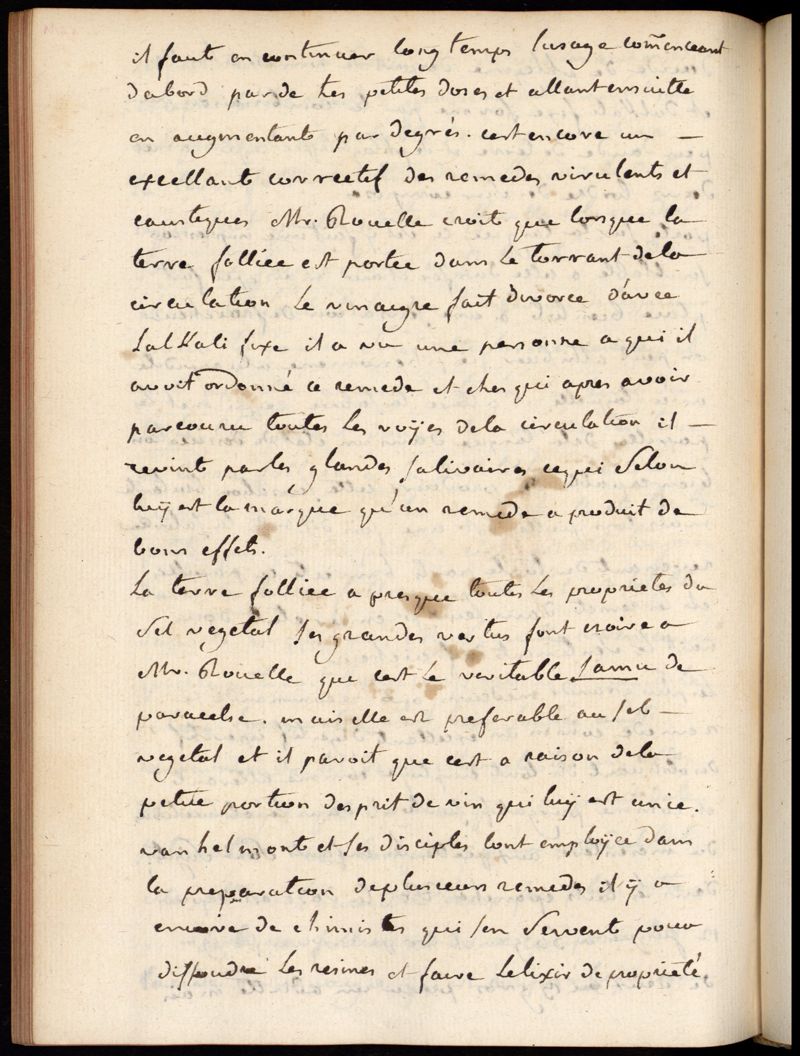 il faut en continuer long temps lusage comēnceant
dabord par de tes petites doses et allant ensuitte
en augmentant par degrés. cest encore un —
excellant correctif des remedes virulents et
caustiques Mr. Rouelle croit que lorsque la
terre folliée est portée dans le torrant dela
circulation le vinaigre fait divorce d'avec
Lalkali fixe il a vu une personne a qui il
avoit ordonné ce remede et ches qui apres avoir
parcouru toutes les voÿes dela circulation il —
revint par les glandes salivaires cequi selon
luÿ est la marque qu'un remede a produit de
bons effets.
La terre folliée a presque toutes les propriétés du
sel vegetal ses grandes vertus font croire a
Mr. Rouelle que cest le veritable de
paracelse. mais elle est preferable au sel —
vegetal et il paroit que cest a raison dela
petite portion desprit de vin qui luÿ est unie.
van helmont et ses disciples lont employée dans
la preparation deplusieurs remedes il ÿ a
encore de chimistes qui sen servent pour
dissoudre les resines et faire lelixir de propriété.